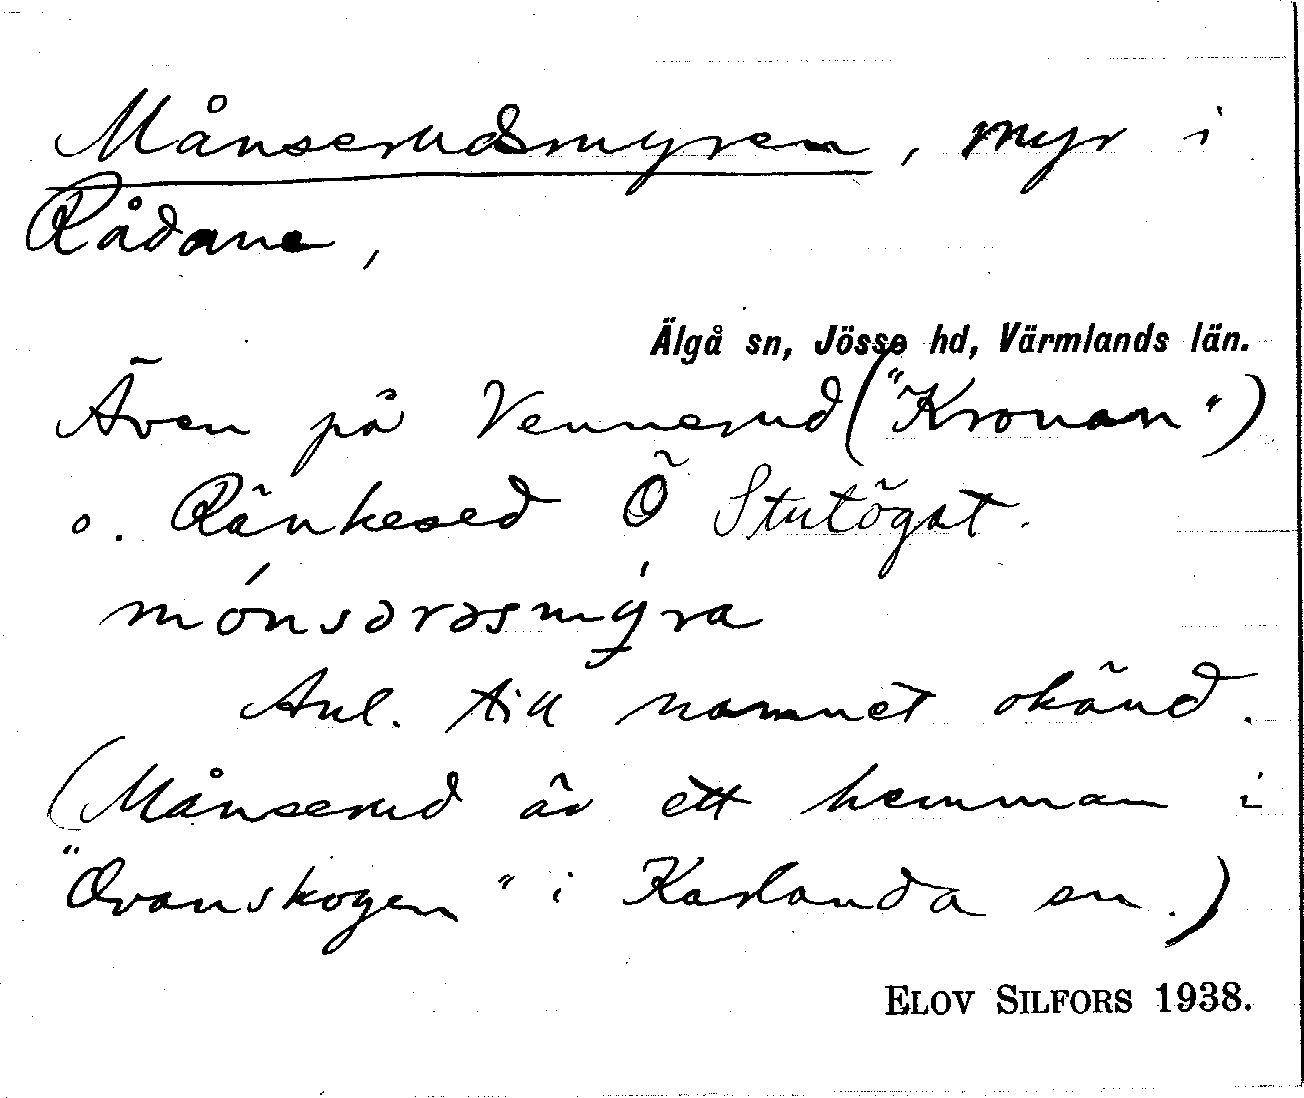 Månserudsmyren, myr i
Rådane,
Älgå sn, Jösse hd, Värmlands län.
Även på Vennerud ("Kronan")
o. Ränkesed Ö Stutögat.
mónsərəsmýra
Anl. till namnet okänd.
(Månserud är ett hemman i
"Ovanskogen" i Karlanda sn.)
ELOV SILFORS 1938.